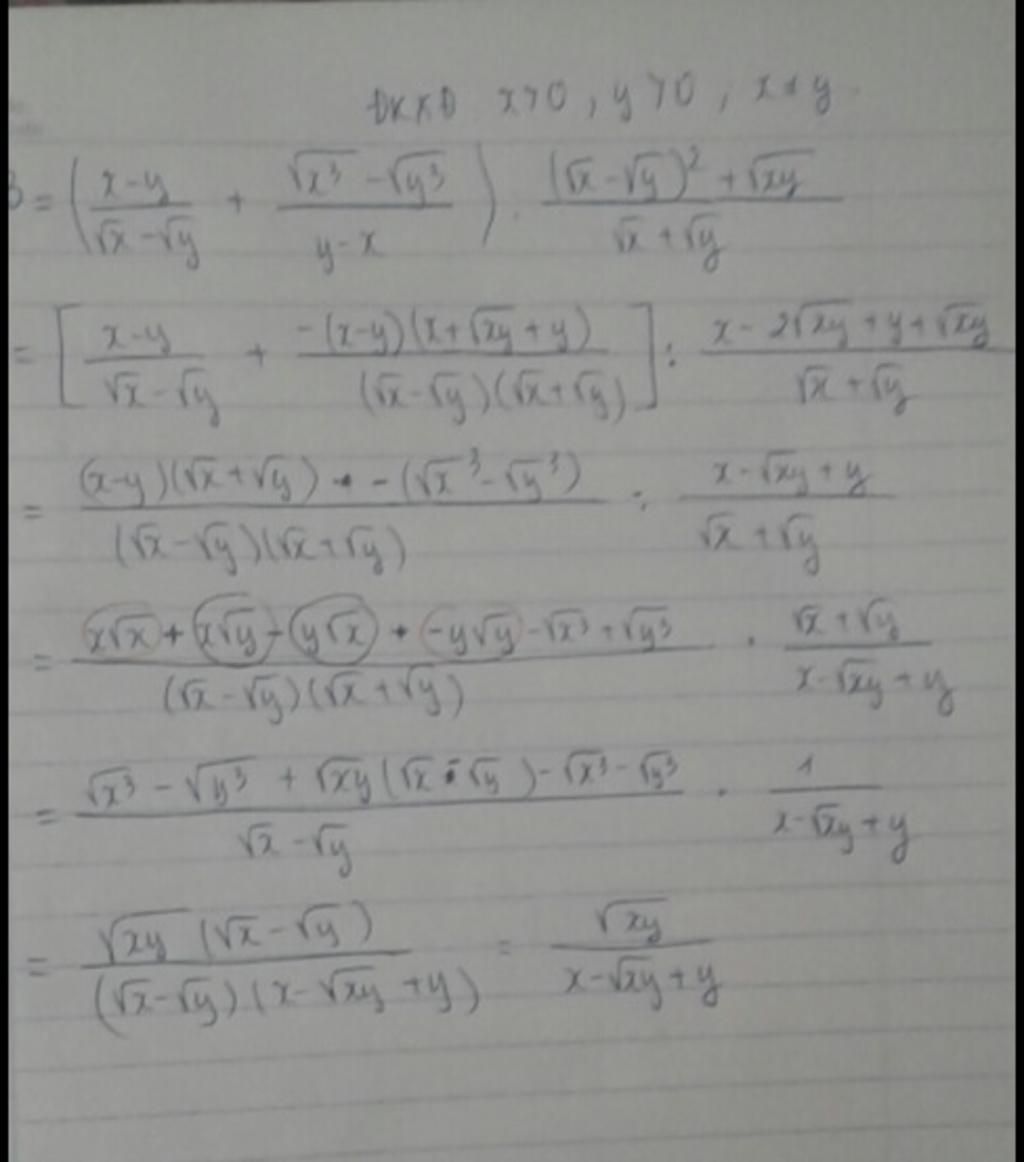 ĐKXĐ x>0, y>0, x≠y
B = (x-y/√x-√y + √x³-√y³/y-x) . (√x-√y)²+√xy/√x+√y
= [x-y/√x-√y + -(x-y)(x+√xy+y)/(√x-√y)(√x+√y)] : x-2√xy+y+√xy/√x+√y
= (x-y)(√x+√y) + -(√x³-√y³)/(√x-√y)(√x+√y) : x-√xy+y/√x+√y
= x√x + x√y - y√x + -y√y - √x³ + √y³/(√x-√y)(√x+√y) . √x+√y/x-√xy+y
= √x³ - √y³ + √xy(√x-√y) - √x³ - √y³/√x-√y . 1/x-√xy+y
= √xy(√x-√y)/(√x-√y)(x-√xy+y) = √xy/x-√xy+y